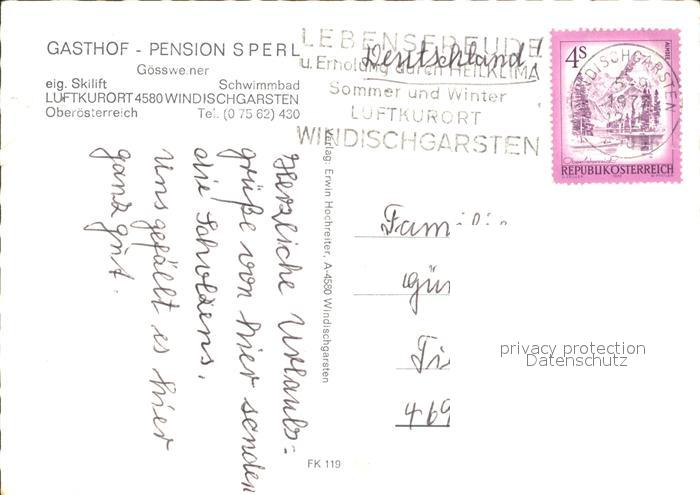 GASTHOF - PENSION SPERL
Gösswe.ner
eig. Skilift Schwimmbad
LUFTKURORT 4580 WINDISCHGARSTEN
Oberösterreich Tel. (0 75 62) 430
LEBENSFREUDE
u. Erholung durch HEILKLIMA
Sommer und Winter
LUFTKURORT
WINDISCHGARSTEN
Deutschland!
4S
ALMSEE
REPUBLIK ÖSTERREICH
WINDISCHGARSTEN
Herzliche Urlaubs=
grüße von hier senden
die Scholzens.
Uns gefällt es hier
ganz gut.
Verlag: Erwin Hochreiter, A-4580 Windischgarsten
Familie
Gün
469
privacy protection
Datenschutz
FK 119